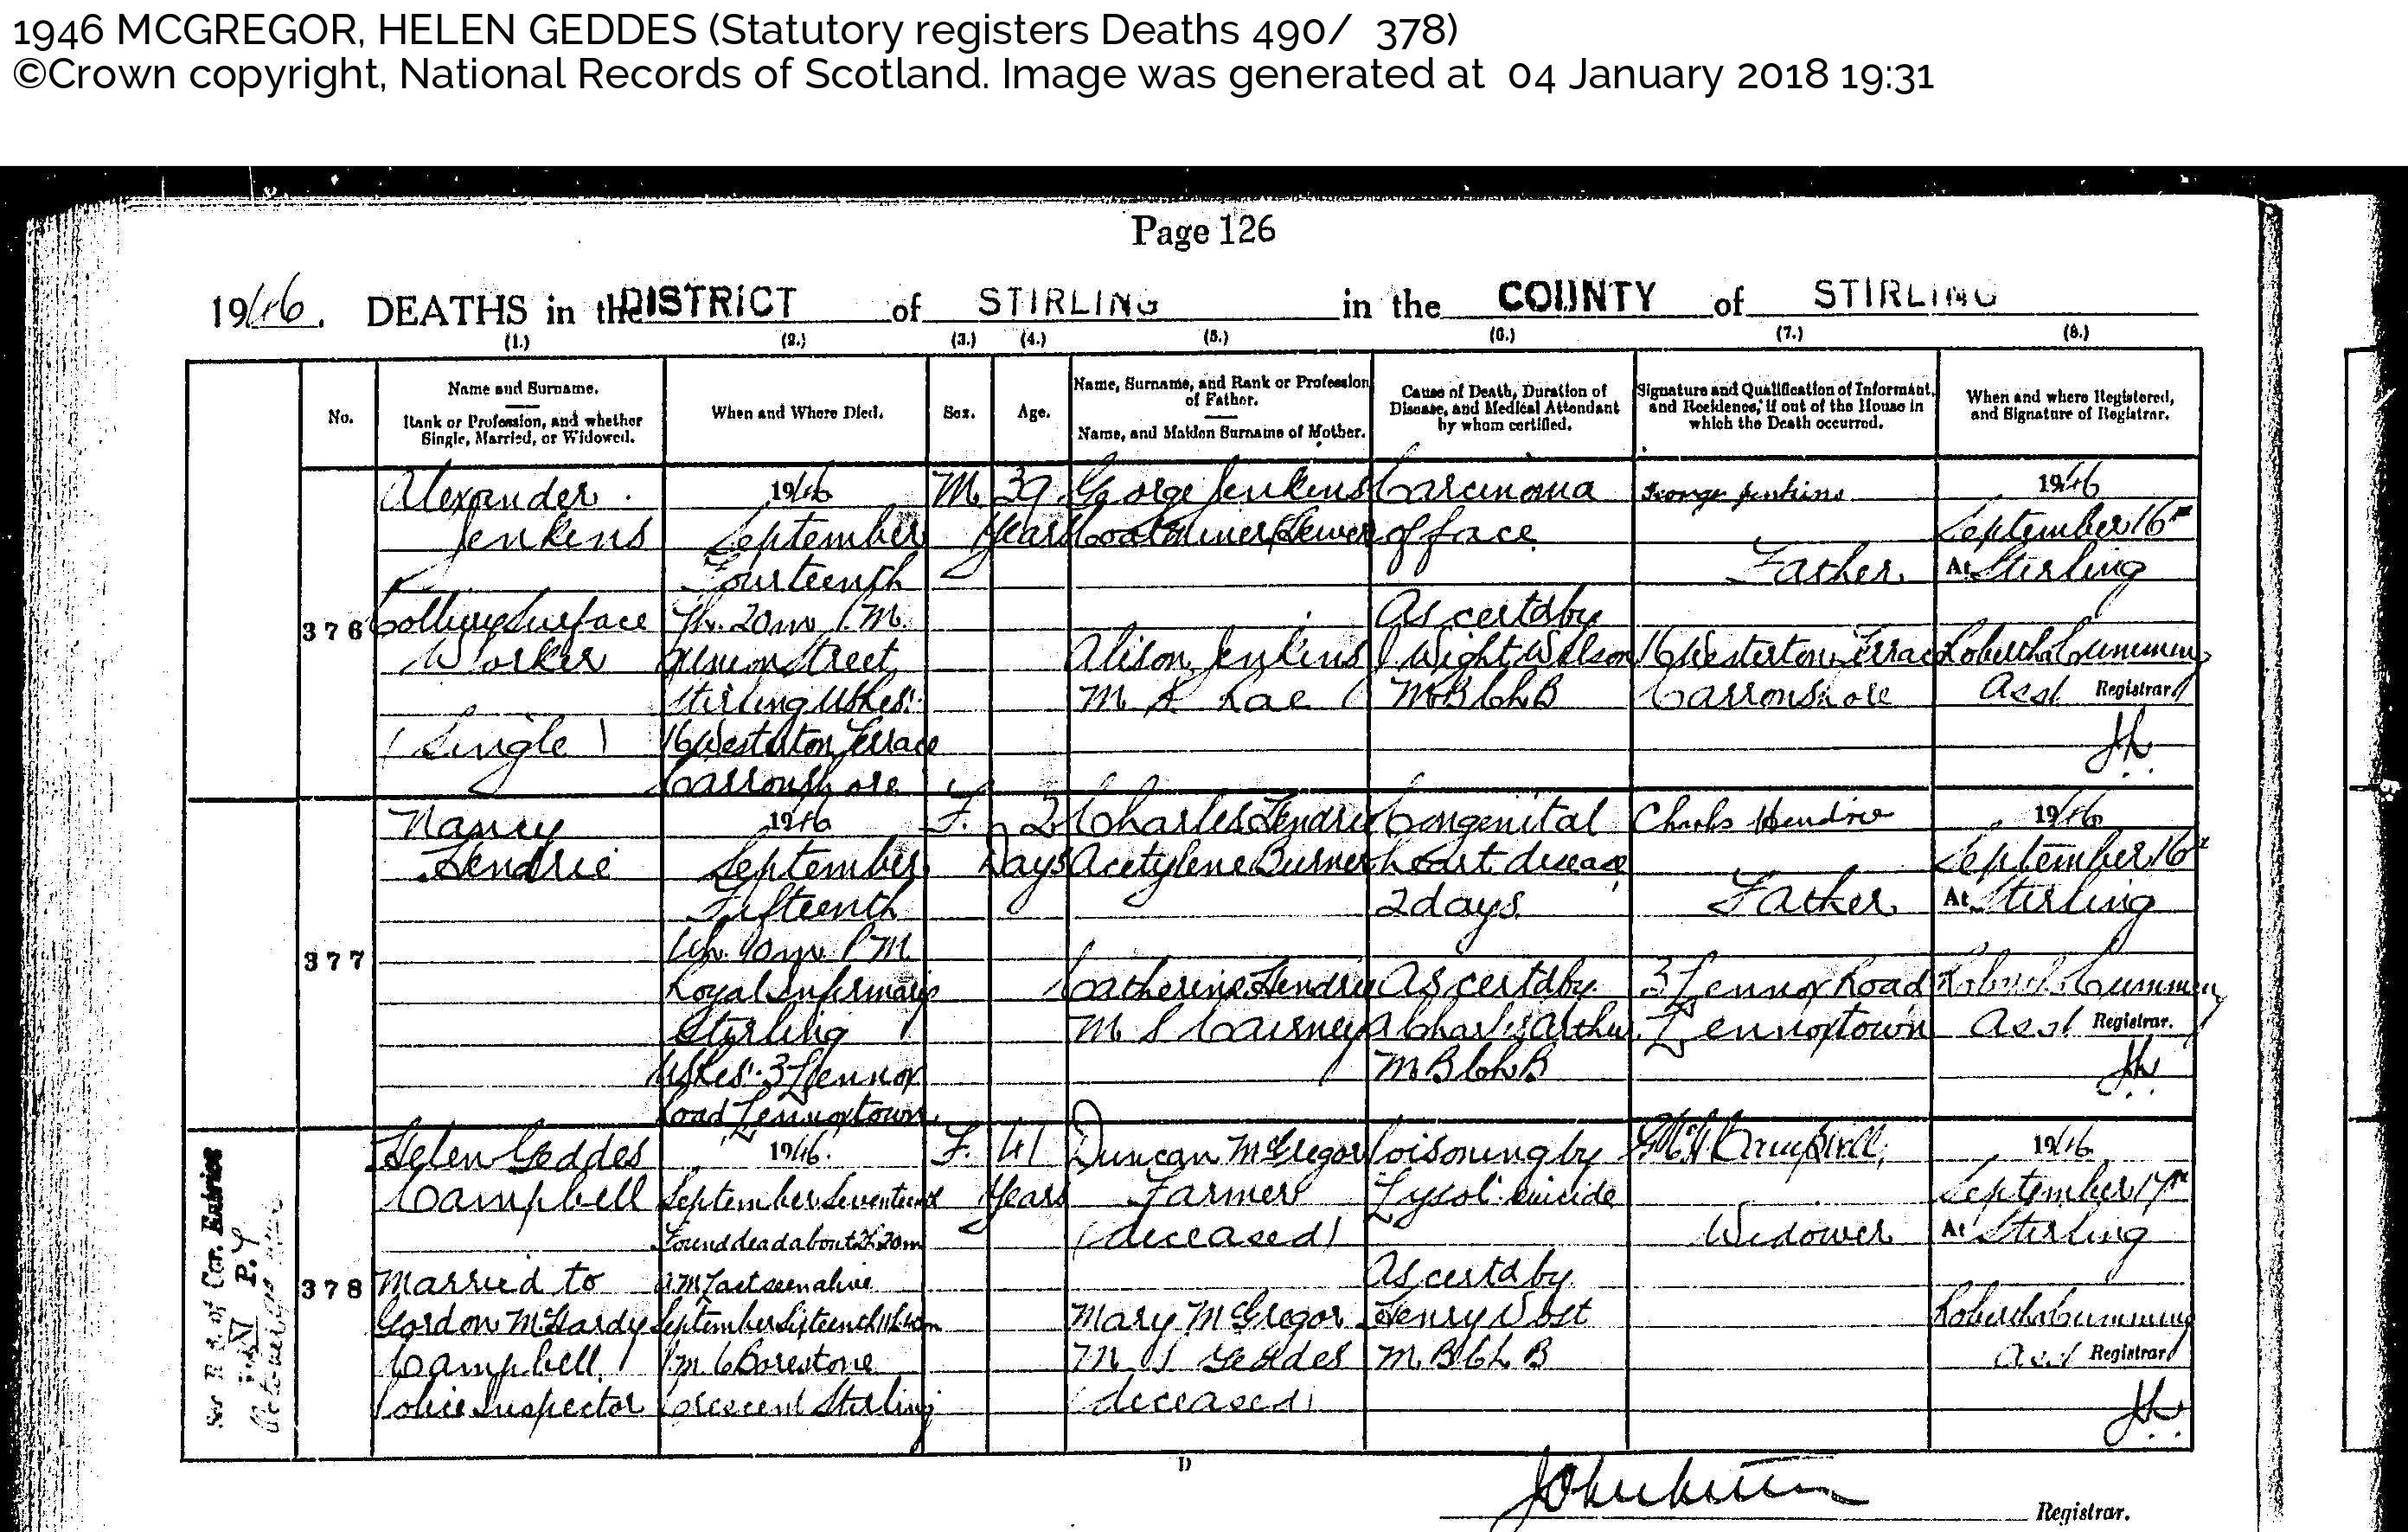 1946 MCGREGOR, HELEN GEDDES (Statutory registers Deaths 490/ 378)
©Crown copyright, National Records of Scotland. Image was generated at 04 January 2018 19:31
Page 126
1946. DEATHS in the DISTRICT of STIRLING in the COUNTY of STIRLING
(1.) (2.) (3.) (4.) (5.) (6.) (7.) (8.)
No.
Name and Surname.
Rank or Profession, and whether
Single, Married, or Widowed.
When and Where Died.
Sex.
Age.
Name, Surname, and Rank or Profession
of Father.
Name, and Maiden Surname of Mother.
Cause of Death, Duration of
Disease, and Medical Attendant
by whom certified.
Signature and Qualification of Informant,
and Residence, if out of the House in
which the Death occurred.
When and where Registered,
and Signature of Registrar.
376
Alexander
Jenkins
Colliery Surface
Worker
(Single)
1946
September
Fourteenth
7h. 20m P.M.
Union Street
Stirling Usres:
16 Westerton Terrace
Carronshore
M.
39
Years
George Jenkins
Coal Miner (Hewer)
Alison Jenkins
M.S. Rae
Carcinoma
of face
As certd by
J Wight Wilson
M.B Ch B
George Jenkins
Father
16 Westerton Terrace
Carronshore
1946
September 16th
At Stirling
Cumming
Asst Registrar
377
Nancy
Hendrie
1946
September
Fifteenth
P.M.
Royal Infirmary
Stirling
Usres: 37 Lennox
Road Lennoxtown
F.
2
Days
Charles Hendrie
Acetylene Burner
Catherine Hendrie
M S Cairney
Congenital
heart disease
2 days
As certd by
A Charles Arthur
M B Ch B
Charles Hendrie
Father
37 Lennox Road
Lennoxtown
1946
September 16th
At Stirling
Cumming
Asst Registrar.
See R. of Cor. Entries
P. 4
378
Helen Geddes
Campbell
Married to
Gordon McHardy
Campbell
Police Inspector
1946.
September Seventeenth
Found dead about 2h. 20m
A.M. Last seen alive
September Sixteenth 11h. 40m
P.M. 6 Borestone
Crescent Stirling
F.
41
Years
Duncan McGregor
Farmer
(deceased)
Mary McGregor
M.S. Geddes
(deceased)
Poisoning by
Lysol: suicide
As certd by
Henry Yost
M B Ch B
Campbell
Widower
1946
September 17th
At Stirling
Cumming
Asst Registrar
D
Registrar.